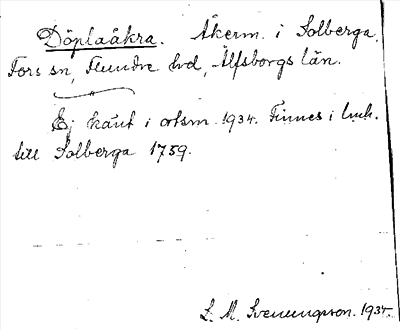 Döplaåkra. Åkerm. i Solberga,
Fors sn, Flundre hd, Älfsborgs län.
Ej känt i ortsn. 1934. Finnes i luh.
till Solberga 1759.
L. M. Svenungsson. 1934.